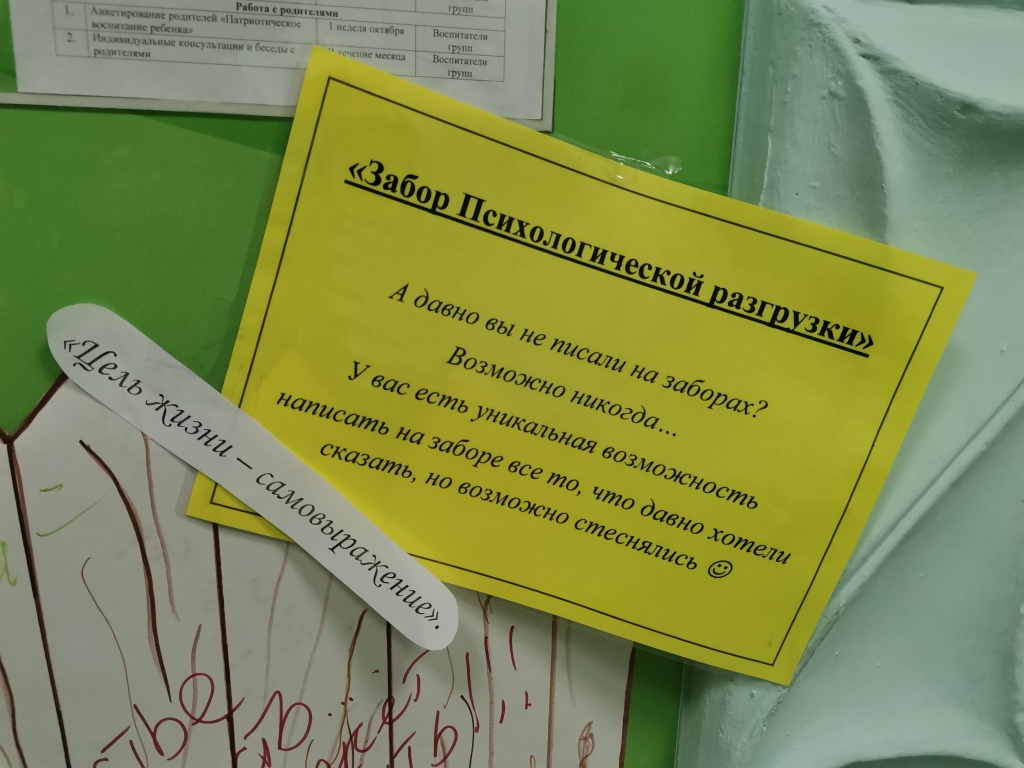 групп
Работа с родителями
1. Анкетирование родителей «Патриотическое воспитание ребенка» 1 неделя октября Воспитатели групп
2. Индивидуальные консультации и беседы с родителями течение месяца Воспитатели групп
«Забор Психологической разгрузки»
А давно вы не писали на заборах?
Возможно никогда...
У вас есть уникальная возможность
написать на заборе все то, что давно хотели
сказать, но возможно стеснялись ☺
«Цель жизни – самовыражение».